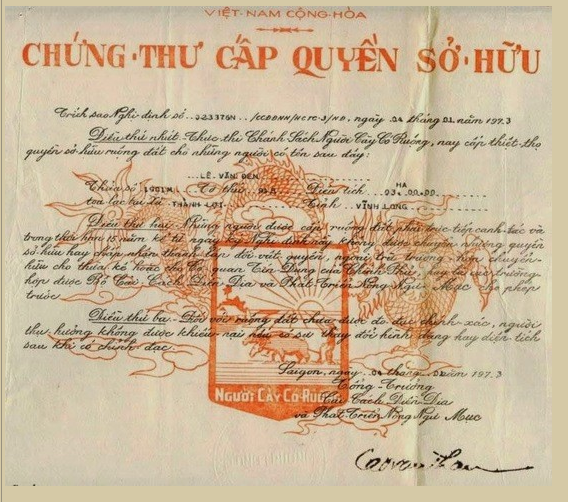 VIỆT-NAM CỘNG-HÒA
CHỨNG-THƯ CẤP QUYỀN SỞ-HỮU
Trích sao Nghị định số 323376N /CCĐĐNN/HCTC-3/NĐ, ngày 04 tháng 01 năm 1973
Điều thứ nhứt - Thực thi Chánh Sách Người Cày Có Ruộng, nay cấp thiết-thọ
quyền sở-hữu ruộng đất cho những người có tên sau đây:
LÊ VĂN ĐEN
Thửa số Tờ thứ Diện tích 03 HA 00.00
tọa lạc tại xã THÀNH LỢI Tỉnh VĨNH LONG
Điều thứ hai - Những người được cấp ruộng đất phải trực tiếp canh-tác và
trong thời hạn 15 năm kể từ ngày Nghị định này không được chuyển nhượng quyền
sở-hữu hay chấp nhận thành lập đối với vật quyền, ngoại trừ trường hợp chuyển-
hữu cho thừa kế hoặc cho Cơ quan Tín Dụng của Chính Phủ, hay trừ các trường
hợp được Bộ Cải Cách Điền Địa và Phát Triển Nông Ngư Mục cho phép
trước.
Điều thứ ba - Đối với ruộng đất chưa được đo đạc chính xác, người
thụ hưởng không được khiếu nại nếu có sự thay đổi hình dạng hay diện tích
sau khi có chỉnh đạc.
Saigon, ngày 04 tháng 01 năm 1973
Tổng-Trưởng
Cải Cách Điền Địa
và Phát Triển Nông Ngư Mục
NGƯỜI CÀY CÓ RUỘNG